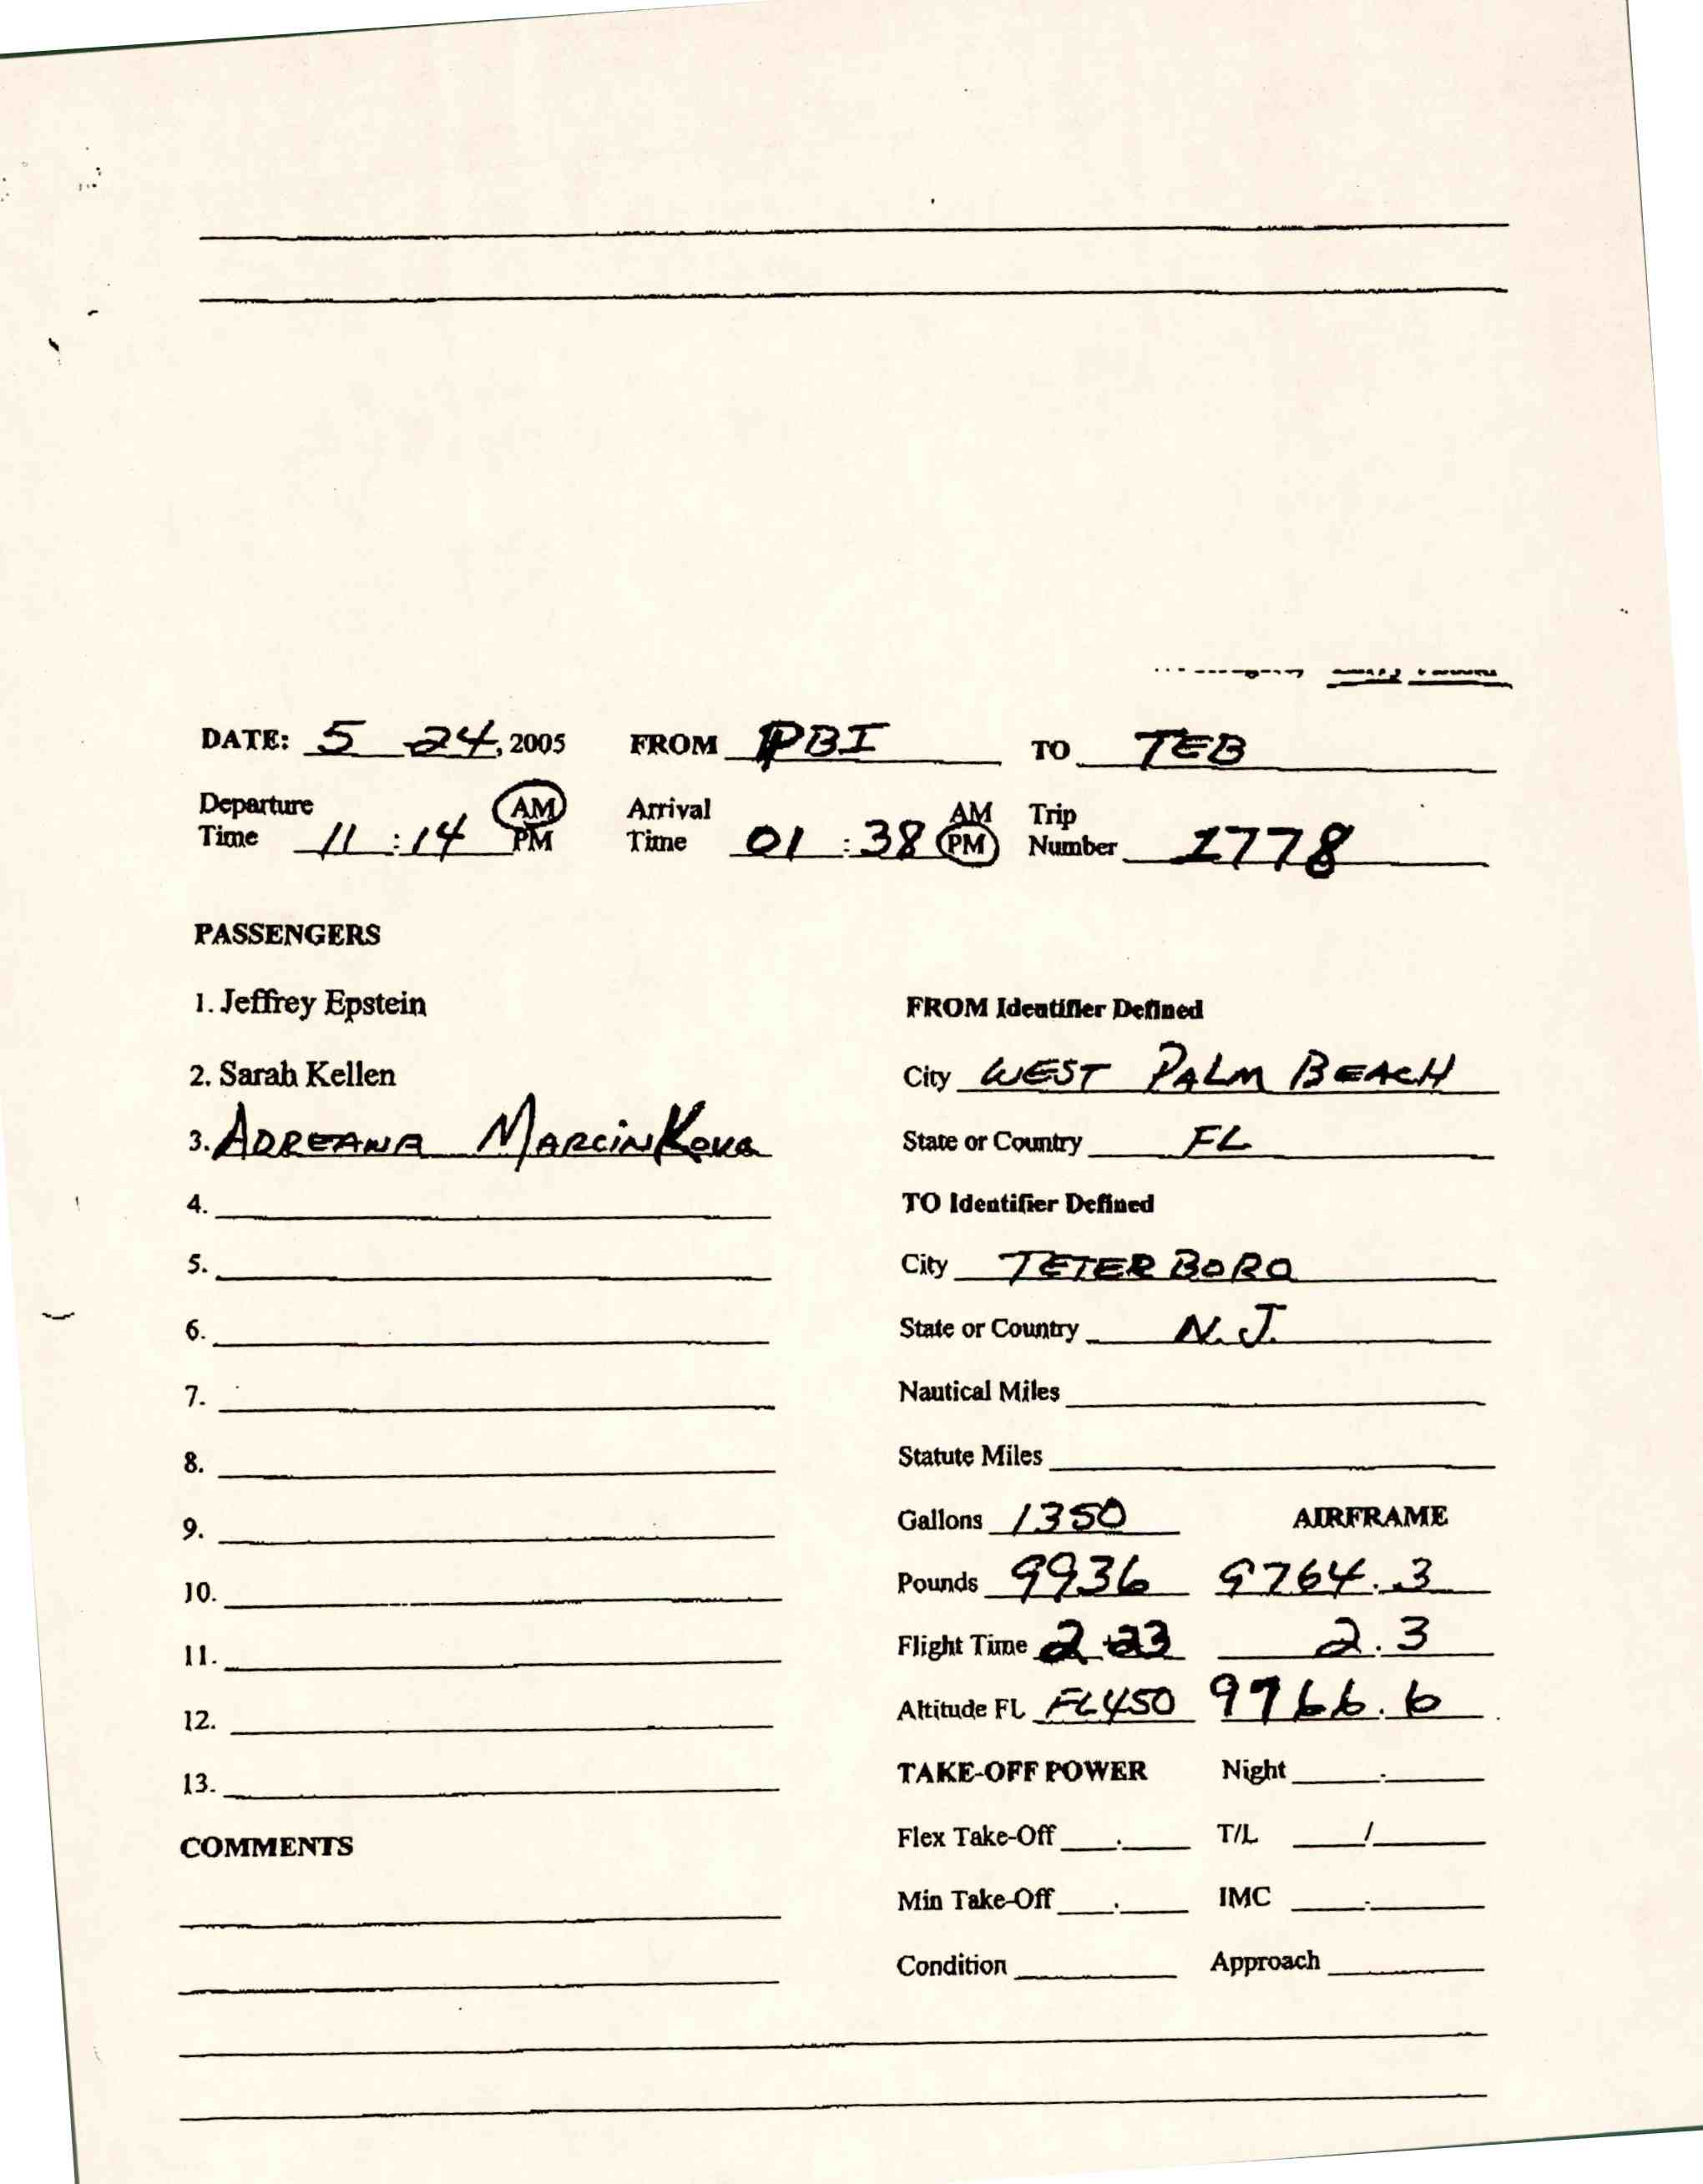 DATE: 5 -24, 2005 FROM PBI TO TEB
Departure AM Arrival AM Trip
Time 11:14 PM Time 01:38 PM Number 1778
PASSENGERS
1. Jeffrey Epstein FROM Identifier Defined
2. Sarah Kellen City WEST PALM BEACH
3. ADREANA MARCINKOVA State or Country FL
4. TO Identifier Defined
5. City TETERBORO
6. State or Country N.J.
7. Nautical Miles
8. Statute Miles
9. Gallons 1350 AIRFRAME
10. Pounds 9936 9764.3
11. Flight Time 2+23 2.3
12. Altitude FL FL450 9766.6
TAKE-OFF POWER Night
13.
Flex Take-Off T/L /
COMMENTS
Min Take-Off IMC
Condition Approach